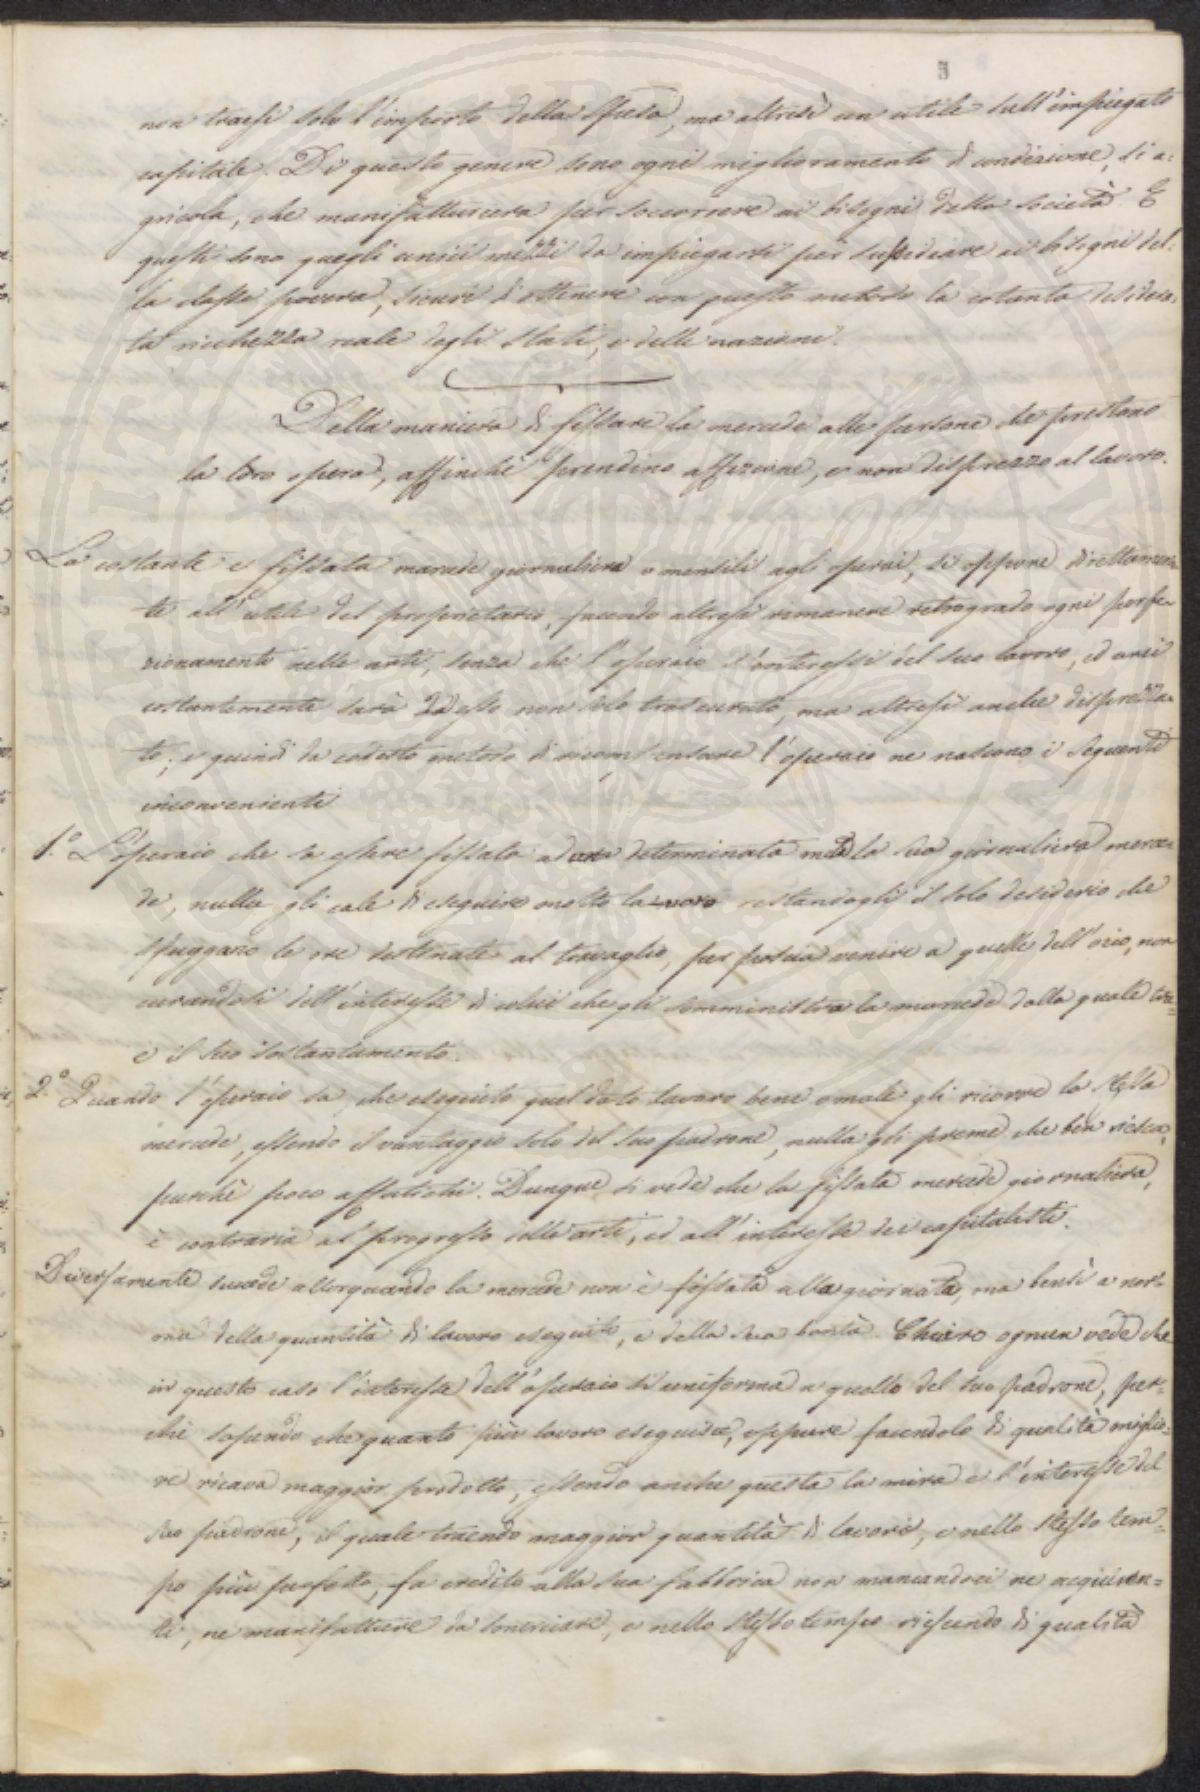 5
non traesi solo l'importo della spesa, ma altresì un utile sull'impiegato
capitale. Di questo genere sono ogni miglioramento di condizione, sì a=
gricola, che manifatturiera per soccorrere ai bisogni della società. E
questi sono quegli unici mezzi da impiegarsi per sussidiare ai bisogni del=
la classe povera, sicuri di ottenere con questo metodo la cotanto desidera=
ta ricchezza reale degli stati, e delle nazioni.
Della maniera di fissare la mercede alle persone che prestano
la loro opera, affinchè prendino affezione, e non disprezzo al lavoro.
La costante e fissata mercede giornaliera o mensile agli operai, si oppone direttamen=
te all'utile del proprietario, facendo altresì rimanere retrogrado ogni perfe=
zionamento nelle arti, senza che l'operaio s'interessi del suo lavoro, ed anzi
costantemente sarà da esso non solo trascurato, ma altresì anche disprezza=
to; e quindi da codesto metodo di ricompensare l'operaio ne nascono i seguenti
inconvenienti
1.° L'operaio che sa essere fissata ad una determinata la sua giornaliera merce=
de, nulla gli cale di eseguire molto lavoro restandogli il solo desiderio che
sfuggano le ore destinate al travaglio, per poscia venire a quelle dell'ozio, non
curandosi dell'interesse di colui che gli somministra la mercede dalla quale tra=
e il suo sostentamento.
2.° Quando l'operaio sa, che eseguito quel dato lavoro bene o male gli ricorre la stessa
mercede, essendo il vantaggio solo del suo padrone, nulla gli preme che ben riesca,
purchè poco affatichi. Dunque si vede che la fissata mercede giornaliera,
è contraria al progresso delle arti, ed all'interesse dei capitalisti.
Diversamente succede allorquando la mercede non è fissata alla giornata, ma bensì a nor=
ma della quantità di lavoro eseguito, e della sua bontà. Chiaro ognun vede che
in questo caso l'interesse dell'operaio si uniforma a quello del suo padrone, per=
chè sapendo che quanto più lavoro eseguisce, oppure facendolo di qualità miglio=
re ricava maggior prodotto, essendo anche questa la mira e l'interesse del
suo padrone, il quale traendo maggior quantità di lavoro, e nello stesso tem=
po più perfetto, fa credito alla sua fabbrica non mancandoci ne acquiren=
ti, ne manifatture da smerciare, e nello stesso tempo riescendo di qualità